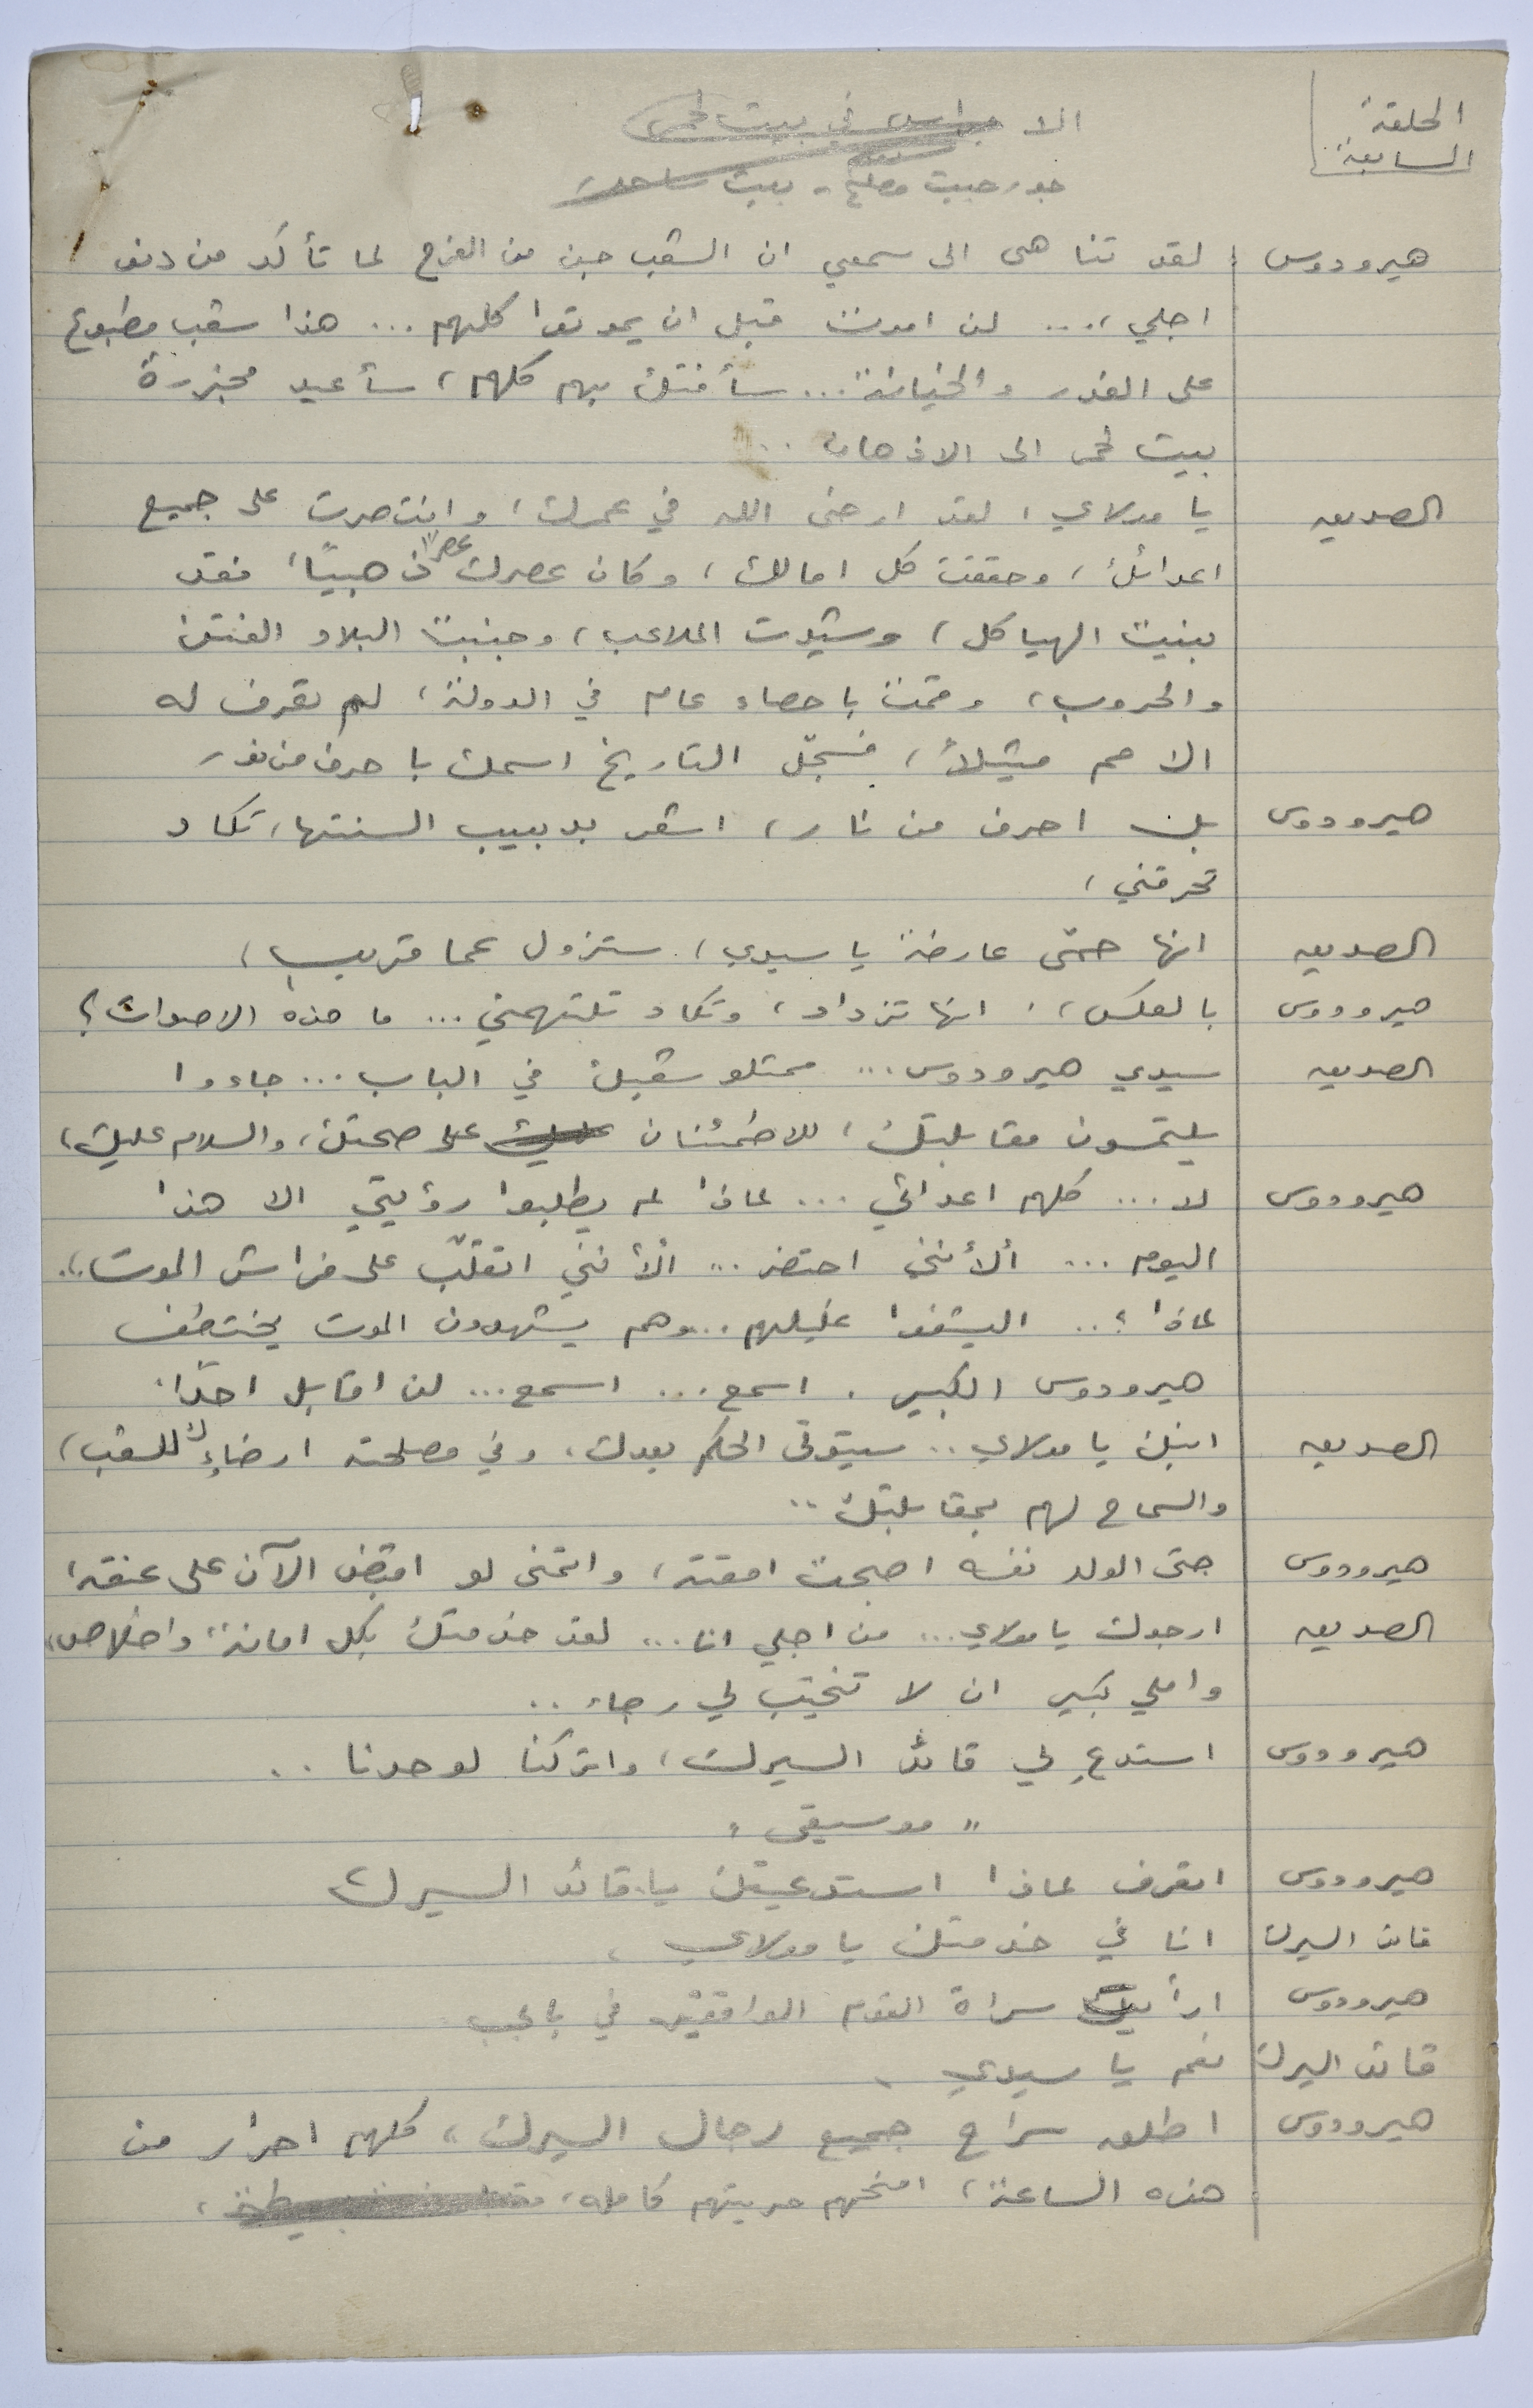 الحلقة
السابعة
الا جراس في بيت لحم
جورجيت مصلح - بيت ساحور
هيرودوس لقد تناهى الى سمعي ان الشعب جن من الفرح لما تأكد من دنو
اجلي، ... لن اموت قبل ان يموتوا كلهم ... هذا شعب مطبوع
على الغدر والخيانة ... سأفتك بهم كلهم، سأعيد مجزرة
بيت لحم الى الاذهان ..
الصديق يا مولاي، لقد ارخى الله في عمرك، وانتصرت على جميع
اعدائك، وحققت كل امالك، وكان عصرك عصراً ذهبيًا، فقد
بنيت الهياكل، وشيدت الملاعب، وجنبت البلاد الفتن
والحروب، وقمت باحصاء عام في الدولة، لم تعرف له
الامم مثيلاً، فسجّل التاريخ اسمك باحرف من نور
هيرودوس بل احرف من نار، اشعر بدبيب السنتها، تكاد
تحرقني،
الصديق انها حمّى عارضة يا سيدي، ستزول عما قريب،
هيرودوس بالعكس، انها تزداد، وتكاد تلتهمني ... ما هذه الاصوات؟
الصديق سيدي هيرودوس ... ممثلو شعبك في الباب ... جاءوا
يلتمسون مقابلتك، للاطمئنان عليك على صحتك، والسلام عليك،
هيرودوس لا ... كلهم اعدائي ... لماذا لم يطلبوا رؤيتي الا هذا
اليوم ... ألأنني احتضر .. ألأنني اتقلّب على فراش الموت ..
لماذا؟ .. اليشفوا غليلهم .. وهم يشهدون الموت يختطف
هيرودوس الكبير . اسمع ... اسمع ... لن اقابل احدًا
الصديق ابنك يا مولاي .. سيتولى الحكم بعدك، وفي مصلحته ارضاءك للشعب،
والسماح لهم بمقابلتك ..
هيرودوس حتى الولد نفسه اصبحت امقته، واتمنى لو اقبض الآن على عنقه،
الصديق ارجوك يا مولاي ... من اجلي انا ... لقد خدمتك بكل امانة واخلاص،
واملي كبير ان لا تخيّب لي رجاء ..
هيرودوس استدعِ لي قائد السيرك، واتركنا لوحدنا ..
" موسيقى "
هيرودوس اتعرف لماذا استدعيتك يا قائد السيرك
قائد السيرك انا في خدمتك يا مولاي
هيرودوس ارأيت سراة القوم الواقفين في بابي
قائد السيرك نعم يا سيدي
هيرودوس اطلق سراح جميع رجال السيرك، كلهم احرار من
هذه الساعة، امنحهم حريتهم كاملة،